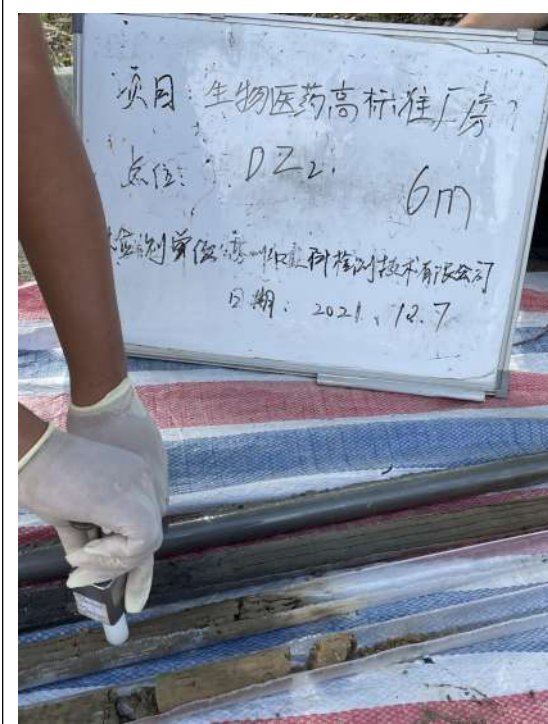 项目: 生物医药高标准厂房
点位: DZ2. 6m
检测单位: 科检测技术有限公司
日期: 2021.12.7